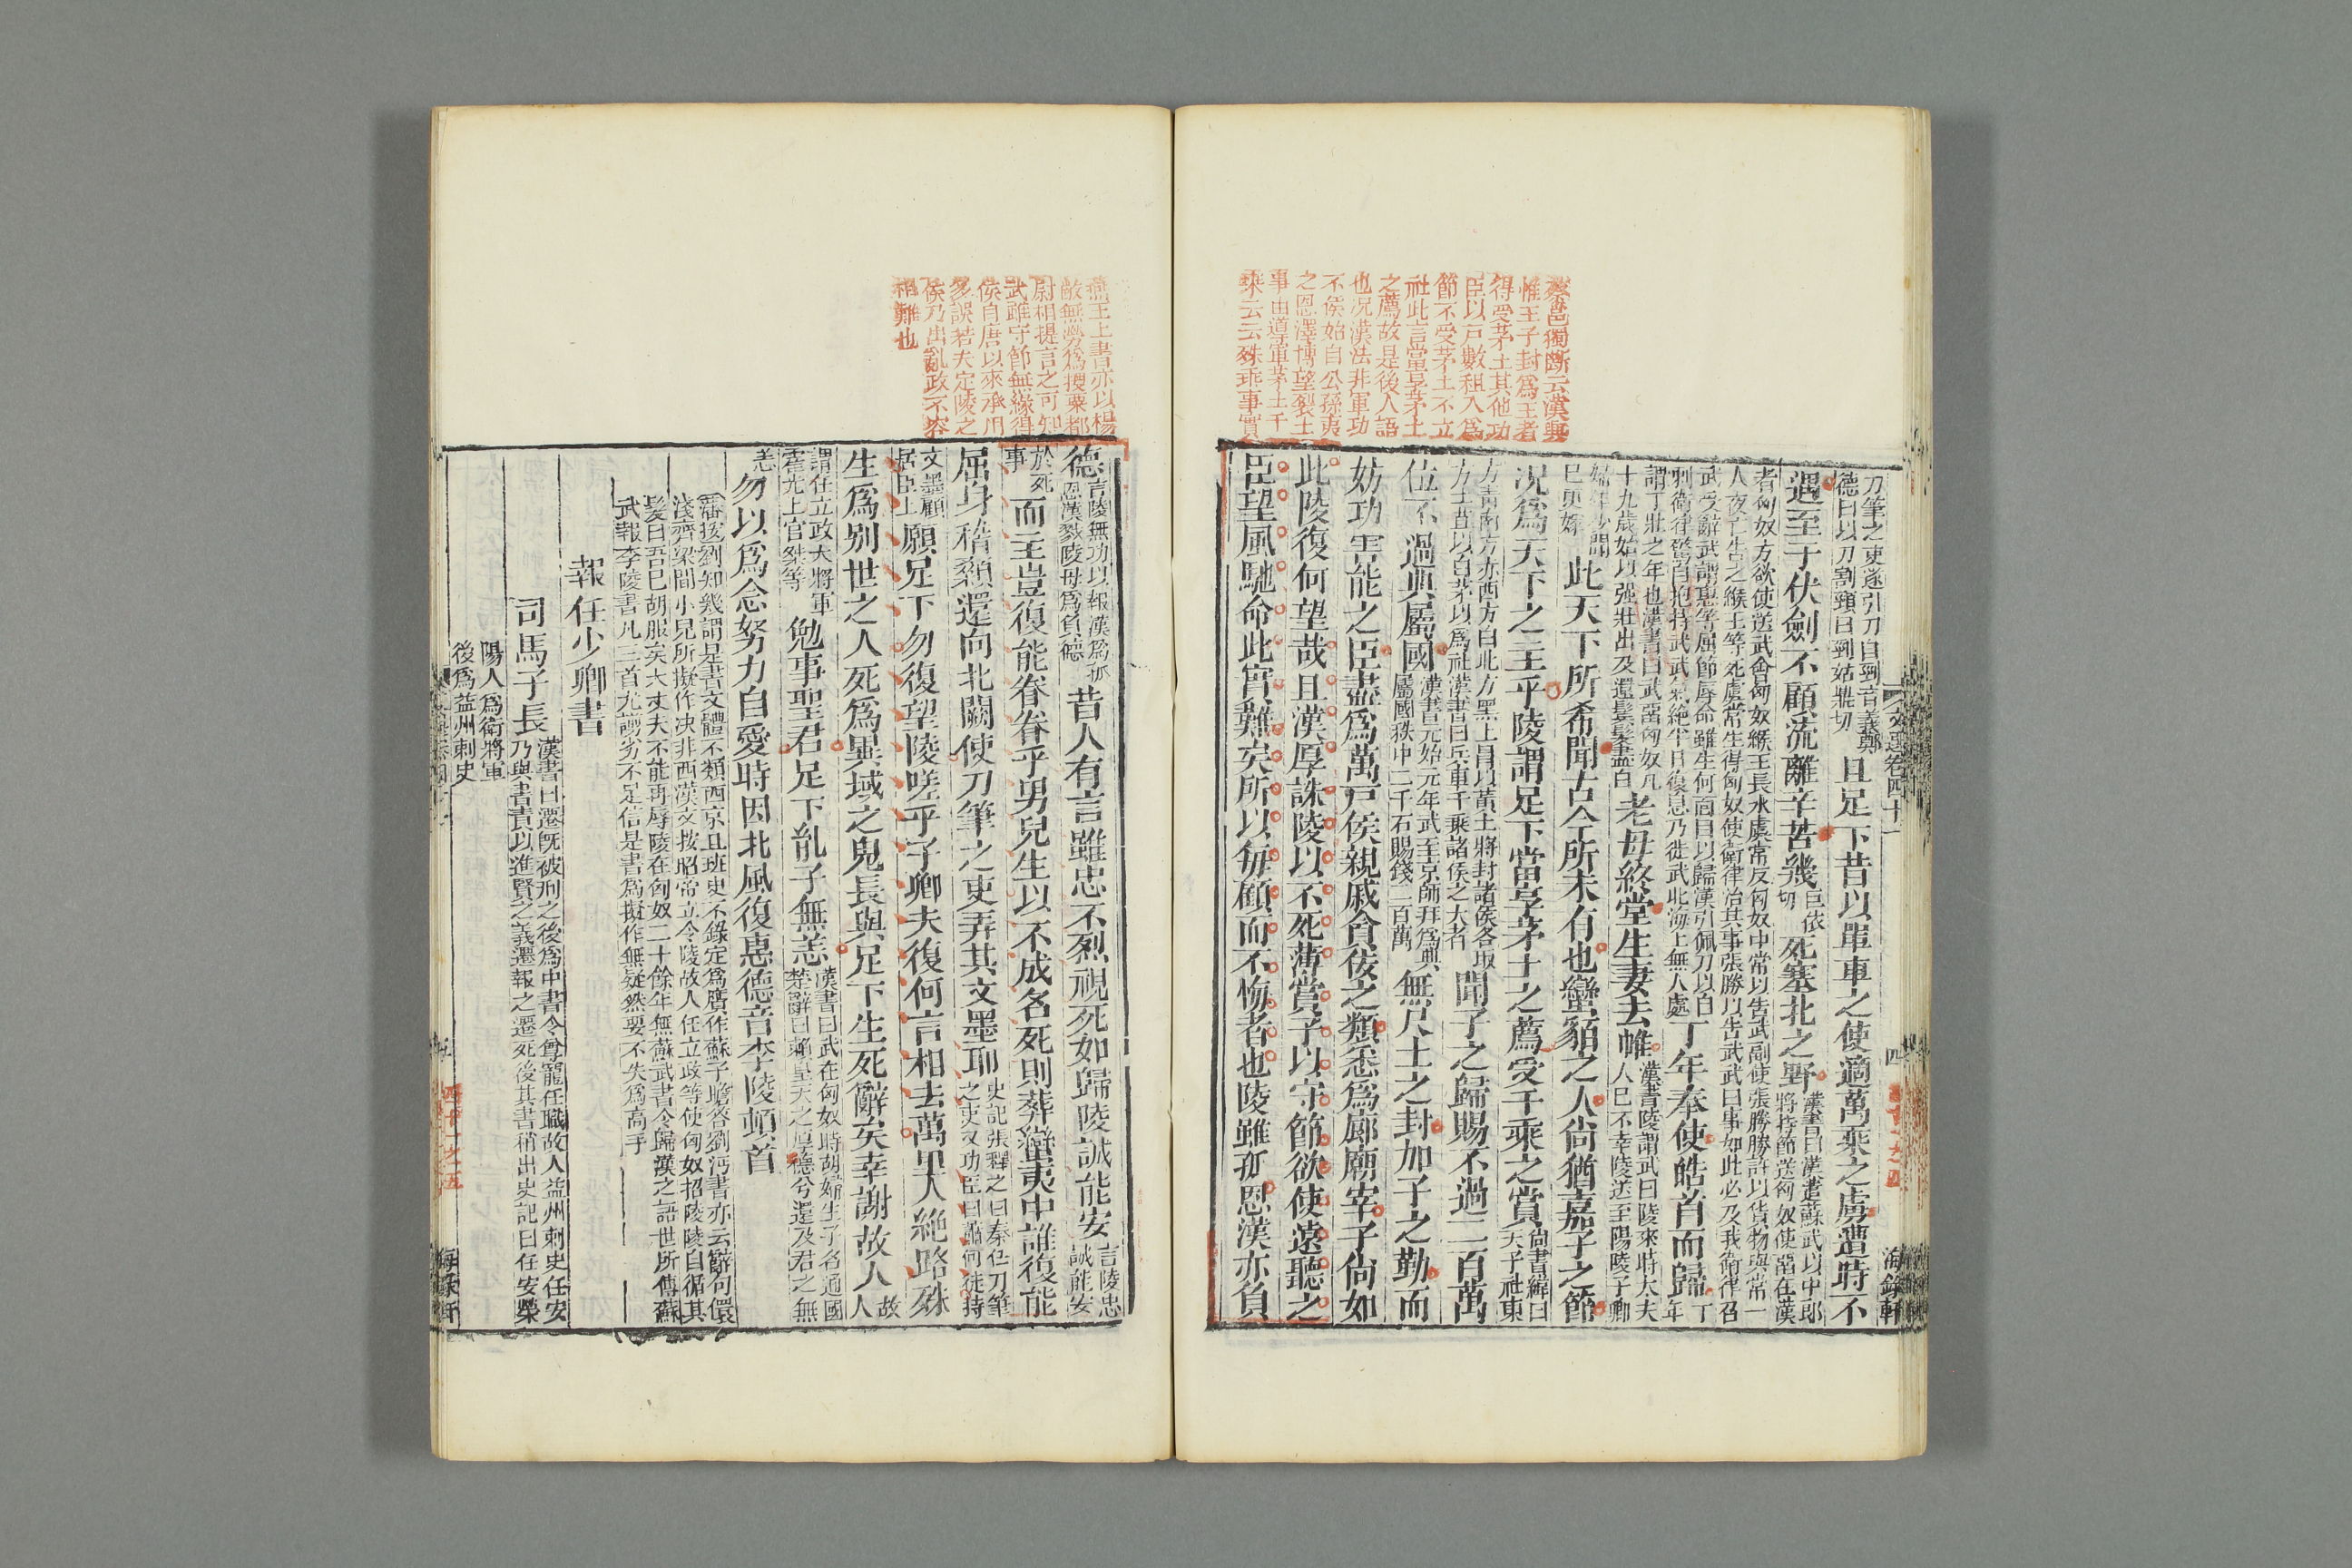 蔡邕獨斷云漢興
惟王子封爲王者
得受茅土其他功
臣以戶數租入爲
節不受茅土不立
社此言當享茅土
之薦故是後人語
也况漢法非軍功
不侯始自公孫
之恩澤博望裂土
事由導軍茅土千
乘云云殊非事實
刀筆之吏遂引刀自剄音義鄭
德曰以刀割頸曰剄姑鼎切
且足下昔以單車之使適萬乘之虜遭時不
遇至于伏劍不顧流離辛苦幾
巨依
切
死塞北之野
漢書曰漢遣蘇武以中郎
將持節送匈奴使畱在漢
者匈奴方欲使送武會匈奴緱王長水虞常反匈奴中常以告武副使張勝勝許以貨物與常一
人夜亡告之緱王等死虞常生得匈奴使衛律治其事張勝以告武武曰事如此此必及我衛律召
武受辭武謂惠等屈節辱命雖生何面目以歸漢引佩刀以自
刺衛律驚自抱持武武氣絶半日復息乃徙武北海上無人處
丁年奉使皓首而歸
丁年
謂丁壯之年也漢書曰武畱匈奴凡
十九歲始以强壯出及還鬚髮盡白
老母終堂生妻去帷
漢書陵謂武曰陵來時太夫
人已不幸陵送至陽陵子卿
婦年少聞
已更嫁
此天下所希聞古今所未有也蠻貊之人尚猶嘉子之節
况爲天下之主乎陵謂足下當享茅土之薦受千乘之賞
尚書緯曰
天子社東
方青南方赤西方白北方黑上冒以黃土將封諸侯各取
方土苴以白茅以爲社漢書曰兵車千乘諸侯之大者
聞子之歸賜不過二百萬
位不過典屬國
漢書元始元年武至京師拜爲典
屬國秩中二千石賜錢二百萬
無尺土之封加子之勤而
妨功害能之臣盡爲萬戶侯親戚貪佞之類悉爲廊廟宰子尚如
此陵復何望哉且漢厚誅陵以不死薄賞子以守節欲使遠聽之
臣望風馳命此實難矣所以每顧而不悔者也陵雖孤恩漢亦負
文選卷四十一
四
海錄軒
燕王上書亦以楊
敞無勞爲搜粟都
尉相提言之可知
武雖守節無緣得
侯自唐以來承用
多誤若夫定陵之
侯乃出亂政不容
相難也
德
言陵無功以報漢爲孤
恩漢戮陵母爲負德
昔人有言雖忠不烈視死如歸陵誠能安
言陵忠
誠能安
於死
事
而主豈復能眷眷乎男兒生以不成名死則葬蠻夷中誰復能
屈身稽顙還向北闕使刀筆之吏弄其文墨耶
史記張釋之曰秦任刀筆
之吏又功臣曰蕭何徒持
文墨顧
居臣上
願足下勿復望陵嗟乎子卿夫復何言相去萬里人絶路殊
生爲别世之人死爲異域之鬼長與足下生死辭矣幸謝故人
故
人
謂任立政大將軍
霍光上官桀等
勉事聖君足下胤子無恙
漢書曰武在匈奴時胡婦生子名通國
楚辭曰賴皇天之厚德兮還及君之無
恙
勿以爲念努力自愛時因北風復惠德音李陵頓首
潘按劉知幾謂是書文體不類西京且班史不錄定爲贋作蘇子瞻答劉沔書亦云辭句儇
淺齊梁間小兒所擬作决非西漢文按昭帝立令陵故人任立政等使匈奴招陵陵自循其
髮曰吾已胡服矣大丈夫不能再辱陵在匈奴二十餘年無蘇武書令歸漢之語世所傳蘇
武報李陵書凡三首尤譾劣不足信是書爲擬作無疑然要不失爲高手
報任少卿書
司馬子長
漢書曰遷旣被刑之後爲中書令尊寵任職故人益州刺史任安
乃與書責以進賢之義遷報之遷死後其書稍出史記曰任安滎
陽人爲衛將軍
後爲益州刺史
海錄軒